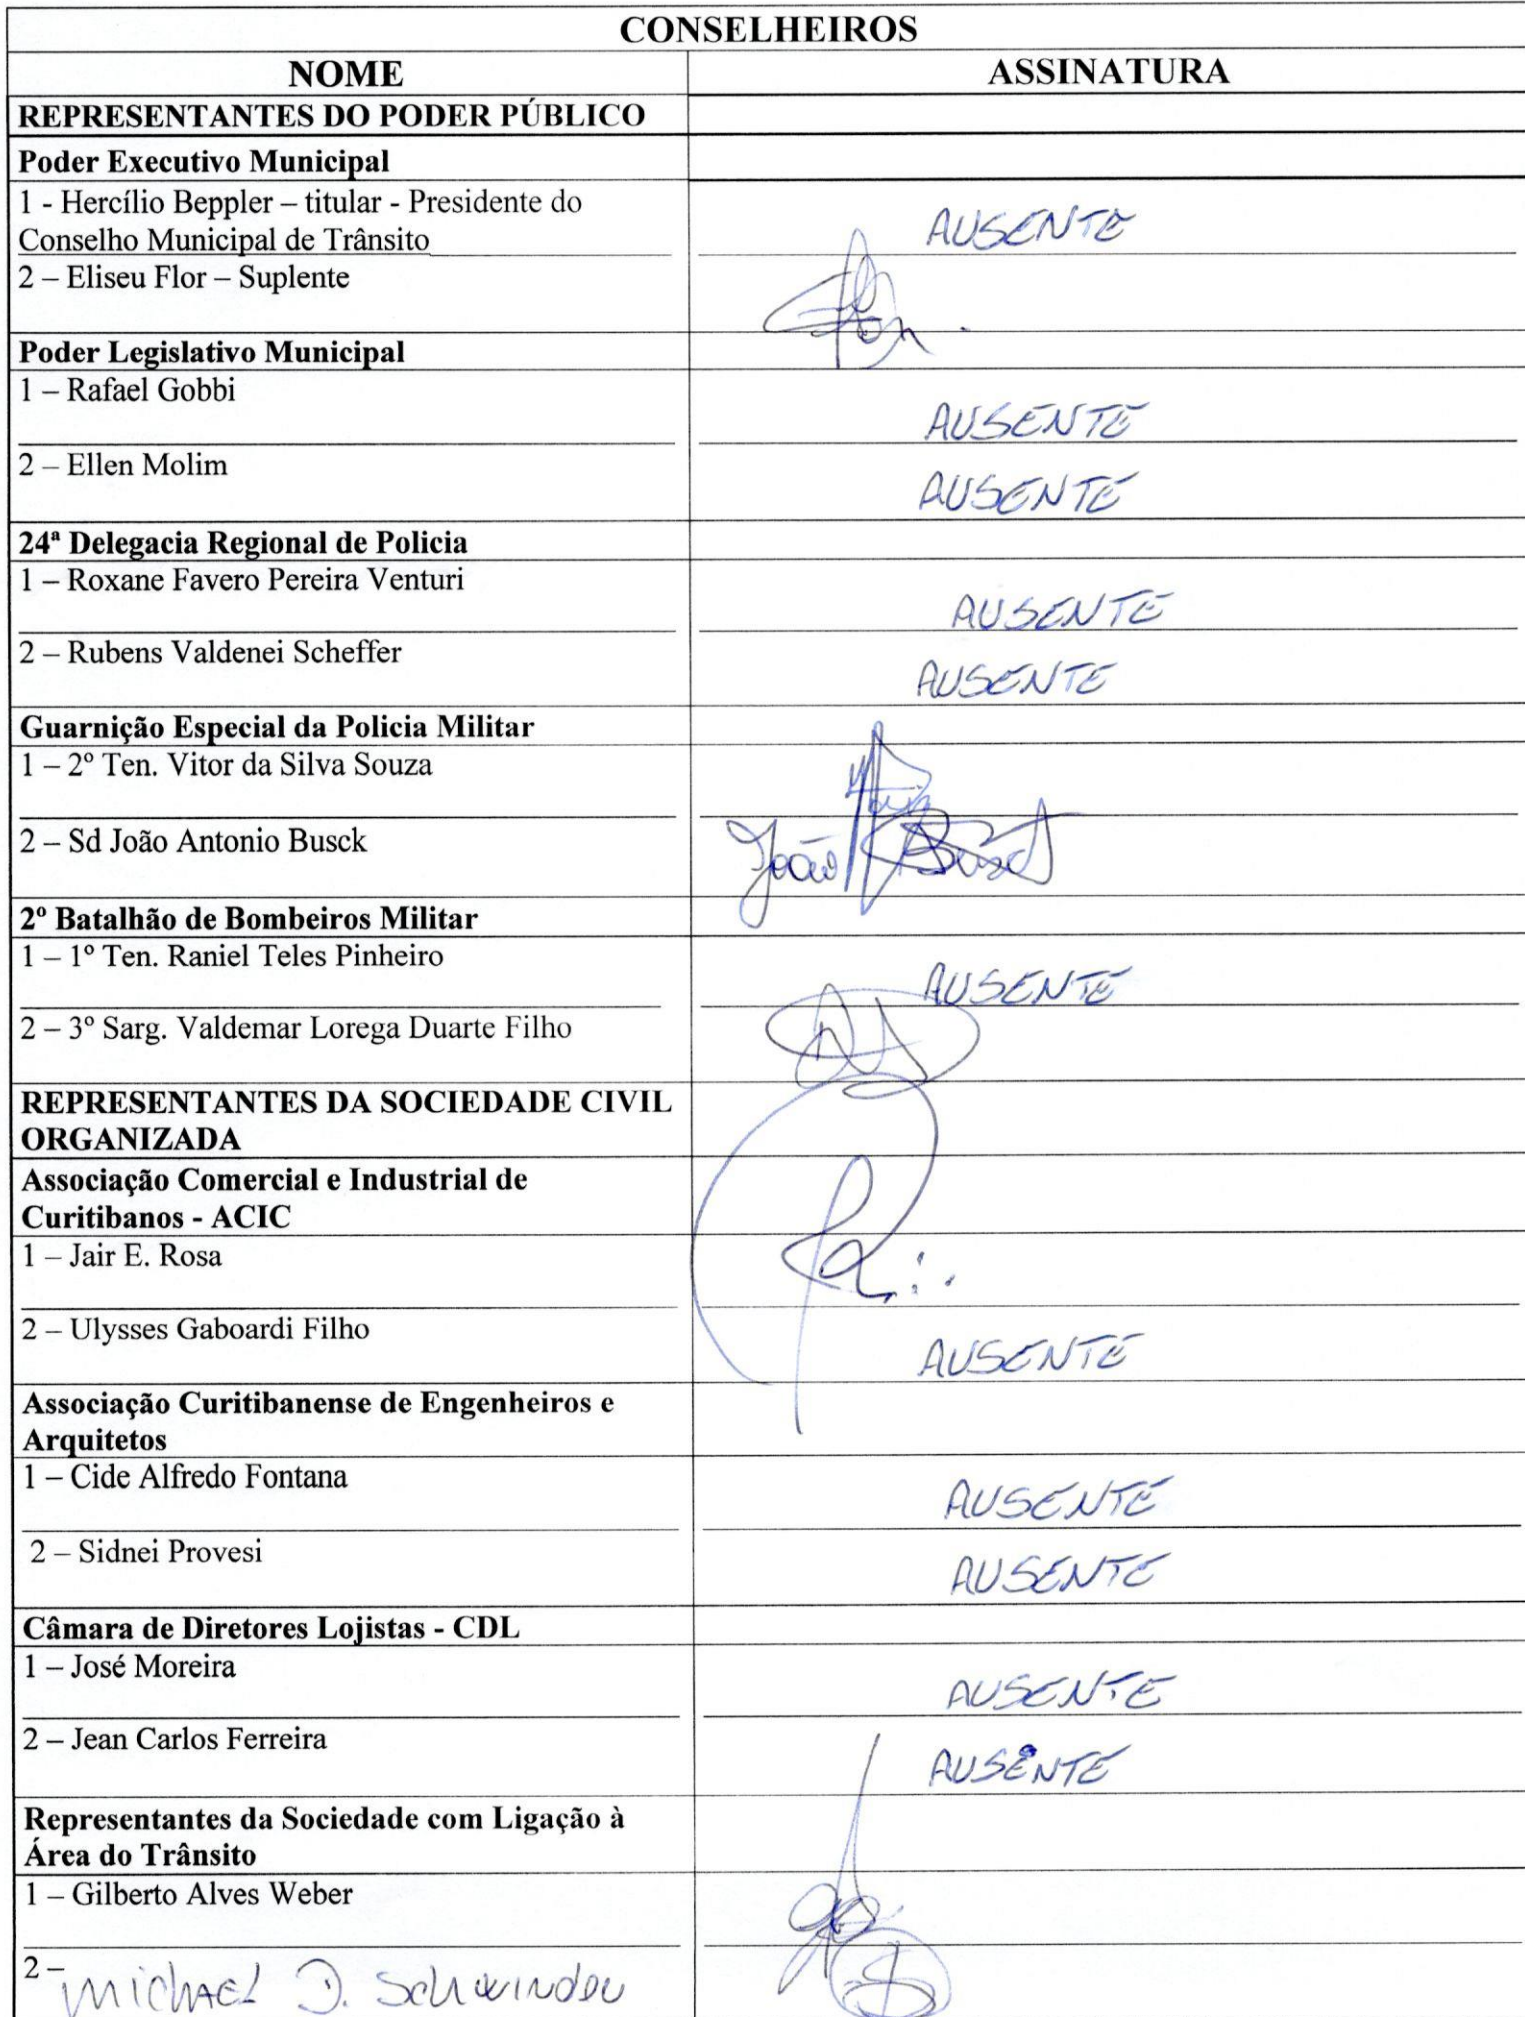 CONSELHEIROS
NOME ASSINATURA
REPRESENTANTES DO PODER PÚBLICO
Poder Executivo Municipal
1 - Hercílio Beppler – titular - Presidente do
Conselho Municipal de Trânsito AUSENTE
2 – Eliseu Flor – Suplente
Poder Legislativo Municipal
1 – Rafael Gobbi AUSENTE
2 – Ellen Molim AUSENTE
24ª Delegacia Regional de Policia
1 – Roxane Favero Pereira Venturi AUSENTE
2 – Rubens Valdenei Scheffer AUSENTE
Guarnição Especial da Policia Militar
1 – 2º Ten. Vitor da Silva Souza
2 – Sd João Antonio Busck João Busck
2º Batalhão de Bombeiros Militar
1 – 1º Ten. Raniel Teles Pinheiro AUSENTE
2 – 3º Sarg. Valdemar Lorega Duarte Filho
REPRESENTANTES DA SOCIEDADE CIVIL
ORGANIZADA
Associação Comercial e Industrial de
Curitibanos - ACIC
1 – Jair E. Rosa
2 – Ulysses Gaboardi Filho AUSENTE
Associação Curitibanense de Engenheiros e
Arquitetos
1 – Cide Alfredo Fontana AUSENTE
2 – Sidnei Provesi AUSENTE
Câmara de Diretores Lojistas - CDL
1 – José Moreira AUSENTE
2 – Jean Carlos Ferreira AUSENTE
Representantes da Sociedade com Ligação à
Área do Trânsito
1 – Gilberto Alves Weber
2 – Michael D.